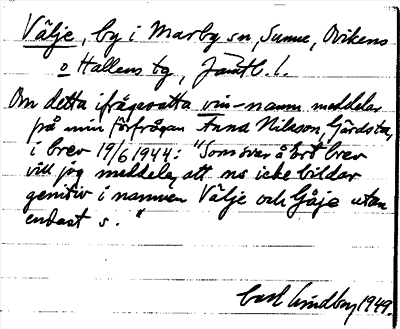 Välje, by i Marby sn, Sunne, Ovikens
o Hallens tg, Jämtl. l.
Om detta ifrågasatta vin-namn meddelar
på min förfrågan Anna Nilsson, Gärdsta,
i brev 19/6 1944: "Som svar å Ert brev
vill jag meddela, att na icke bildar
genitiv i namnen Välje och Gåje utan
endast s."
Carl Lindberg 1949.